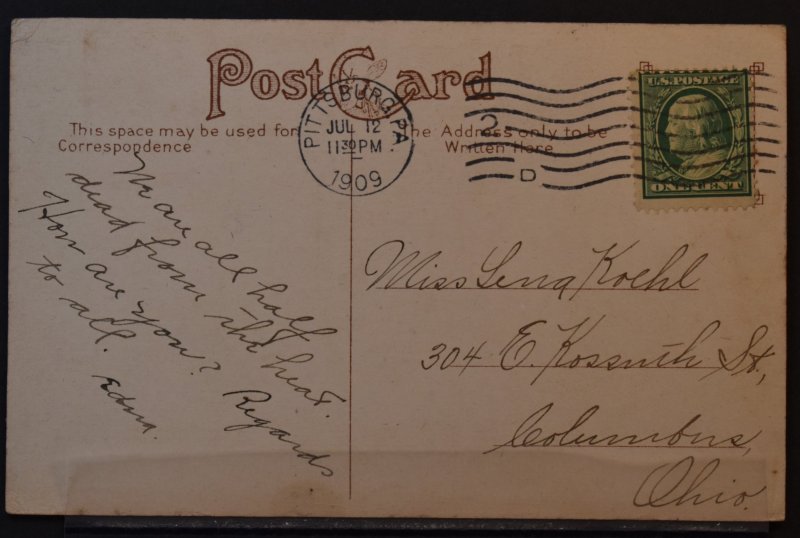 Post Card
This space may be used for
Correspondence
The Address only to be
Written Here
PITTSBURG, PA.
JUL 12
11 30 PM
1909
2
D
U.S. POSTAGE
ONE CENT
We are all half
dead from the heat.
How are you? Regards
to all.
Edna.
Miss Lena Koehl
304 E. Kossuth St.,
Columbus,
Ohio.